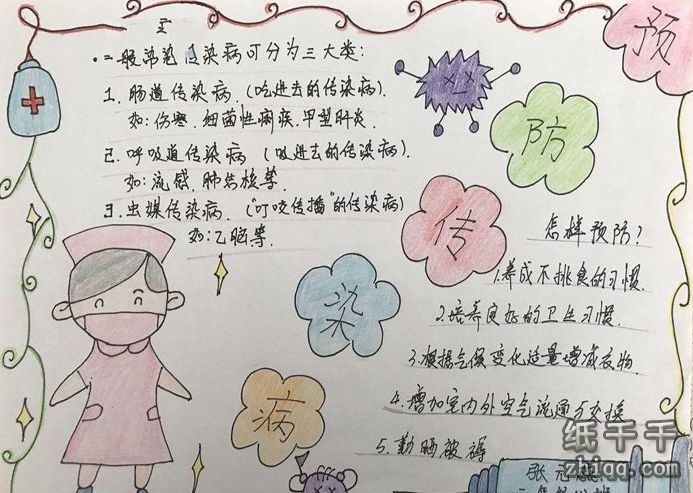 预
防
传
染
病
一般常见传染病可分为三大类:
1.肠道传染病.(吃进去的传染病).
如:伤寒.细菌性痢疾.甲型肝炎.
2.呼吸道传染病(吸进去的传染病).
如:流感.肺结核等.
3.虫媒传染病.("叮咬传播"的传染病)
如:乙脑等.
怎样预防?
1.养成不挑食的习惯.
2.培养良好的卫生习惯.
3.根据气候变化适量增减衣物
4.增加室内外空气流通与交换
5.勤晒被褥
纸千千
zhiqq.com